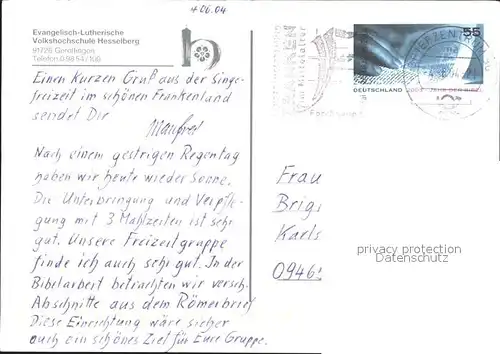 + 06.04
Evangelisch-Lutherische
Volkshochschule Hesselberg
91726 Gerolfingen
Telefon 0 98 54 / 100
Einen Kurzen Gruß aus der Singe-
freizeit im schönen Frankenland
sendet Dir
Manfred
Nach einem gestrigen Regentag
haben wir heute wieder Sonne.
Die Unterbringung und Verpfle-
gung mit 3 Mahlzeiten ist sehr
gut. Unsere Freizeitgruppe
finde ich auch sehr gut. In der
Bibelarbeit betrachten wir versch.
Abschnitte aus dem Römerbrief
Diese Einrichtung wäre sicher
auch ein schönes Ziel für Eure Gruppe.
55
DEUTSCHLAND 2003 JAHR DER BIBEL
BRIEFZENTRUM
Frau
Brigi
Karls
0946
privacy protection
Datenschutz